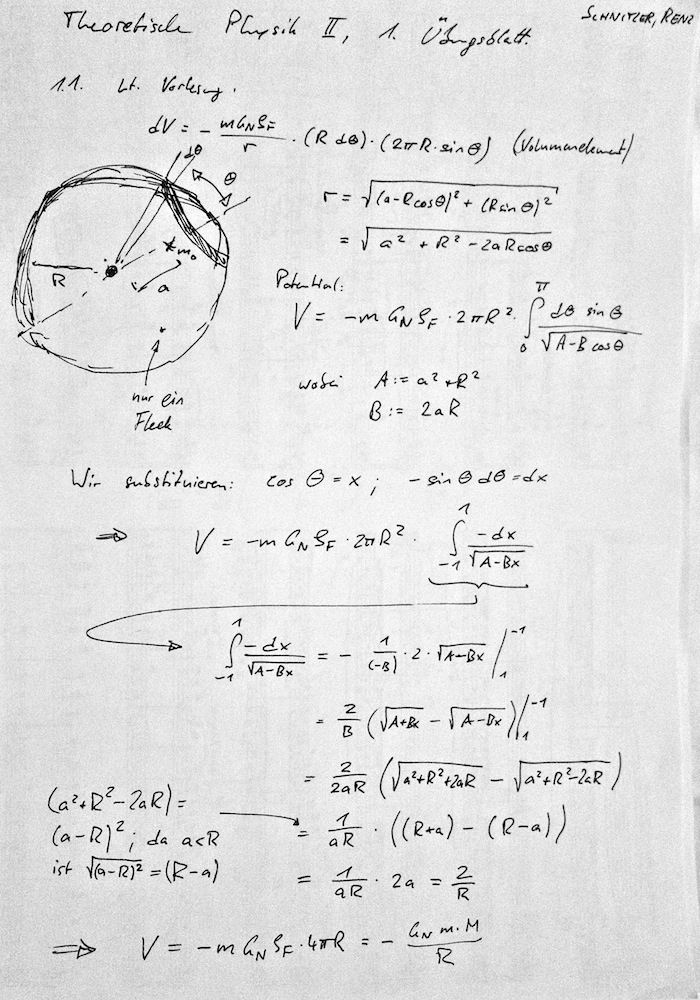 SCHNITZER, RENE
Theoretische Physik II, 1. Übungsblatt.
1.1. Lt. Vorlesung:
dV = - mG_Nρ_F / r · (R dθ) · (2πR · sinθ) (Volumenelement)
dθ
θ
m₀
R
a
nur ein
Fleck
r = √((a-Rcosθ)² + (Rsinθ)²)
= √(a² + R² - 2aRcosθ)
Potential:
V = -m G_N ρ_F · 2πR² · ∫₀^π dθ sinθ / √(A-B cosθ)
wobei A := a²+R²
B := 2aR
Wir substituieren: cos θ = x ; -sinθ dθ = dx
⇒ V = -m G_N ρ_F · 2πR² · ∫₋₁¹ -dx / √(A-Bx)
∫₋₁¹ -dx / √(A-Bx) = - 1/(-B) · 2 · √(A-Bx) |₁⁻¹
= 2/B (√(A+Bx) - √(A-Bx)) |₁⁻¹
= 2/2aR (√(a²+R²+2aR) - √(a²+R²-2aR))
(a²+R²-2aR) =
(a-R)² ; da a<R
ist √((a-R)²) = (R-a)
= 1/aR · ((R+a) - (R-a))
= 1/aR · 2a = 2/R
⇒ V = -m G_N ρ_F · 4πR = - G_N m·M / R